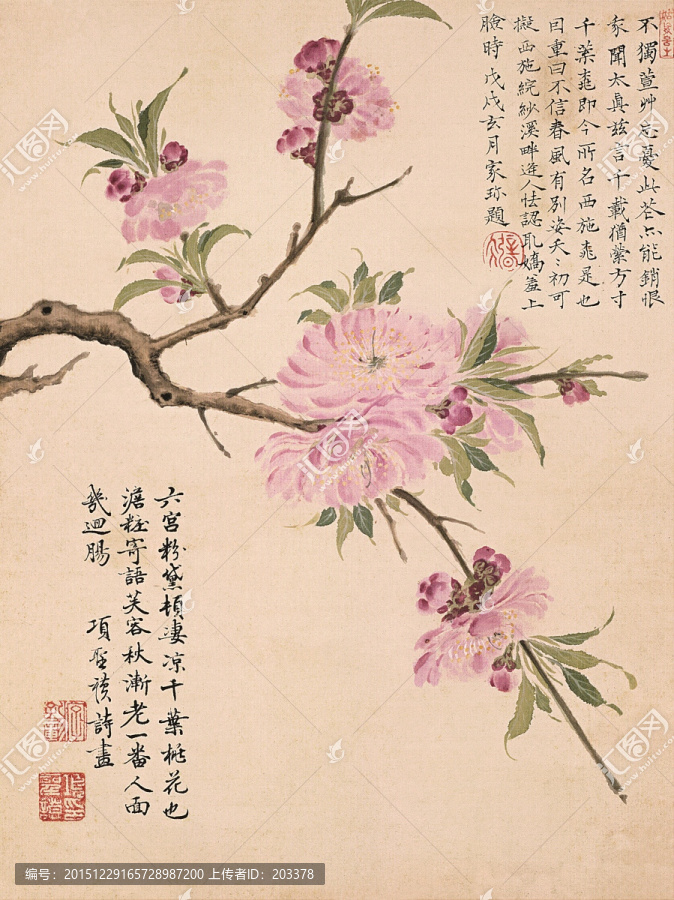 不獨萱艸忘憂此花亦能銷恨
家聞太真茲言千載猶縈方寸
千葉桃即今所名西施桃是也
因重曰不信春風有別姿夭〻初可
擬西施浣紗溪畔迷人怯認取嬌羞上
臉時戊戌玄月家珎題
六宮粉黛頓凄凉千葉桃花也
澹粧寄語芙容秋漸老一番人面
幾迴腸
項聖謨詩畫
汇图网
huitu.com
编号：20151229165728987200 上传者ID：203378